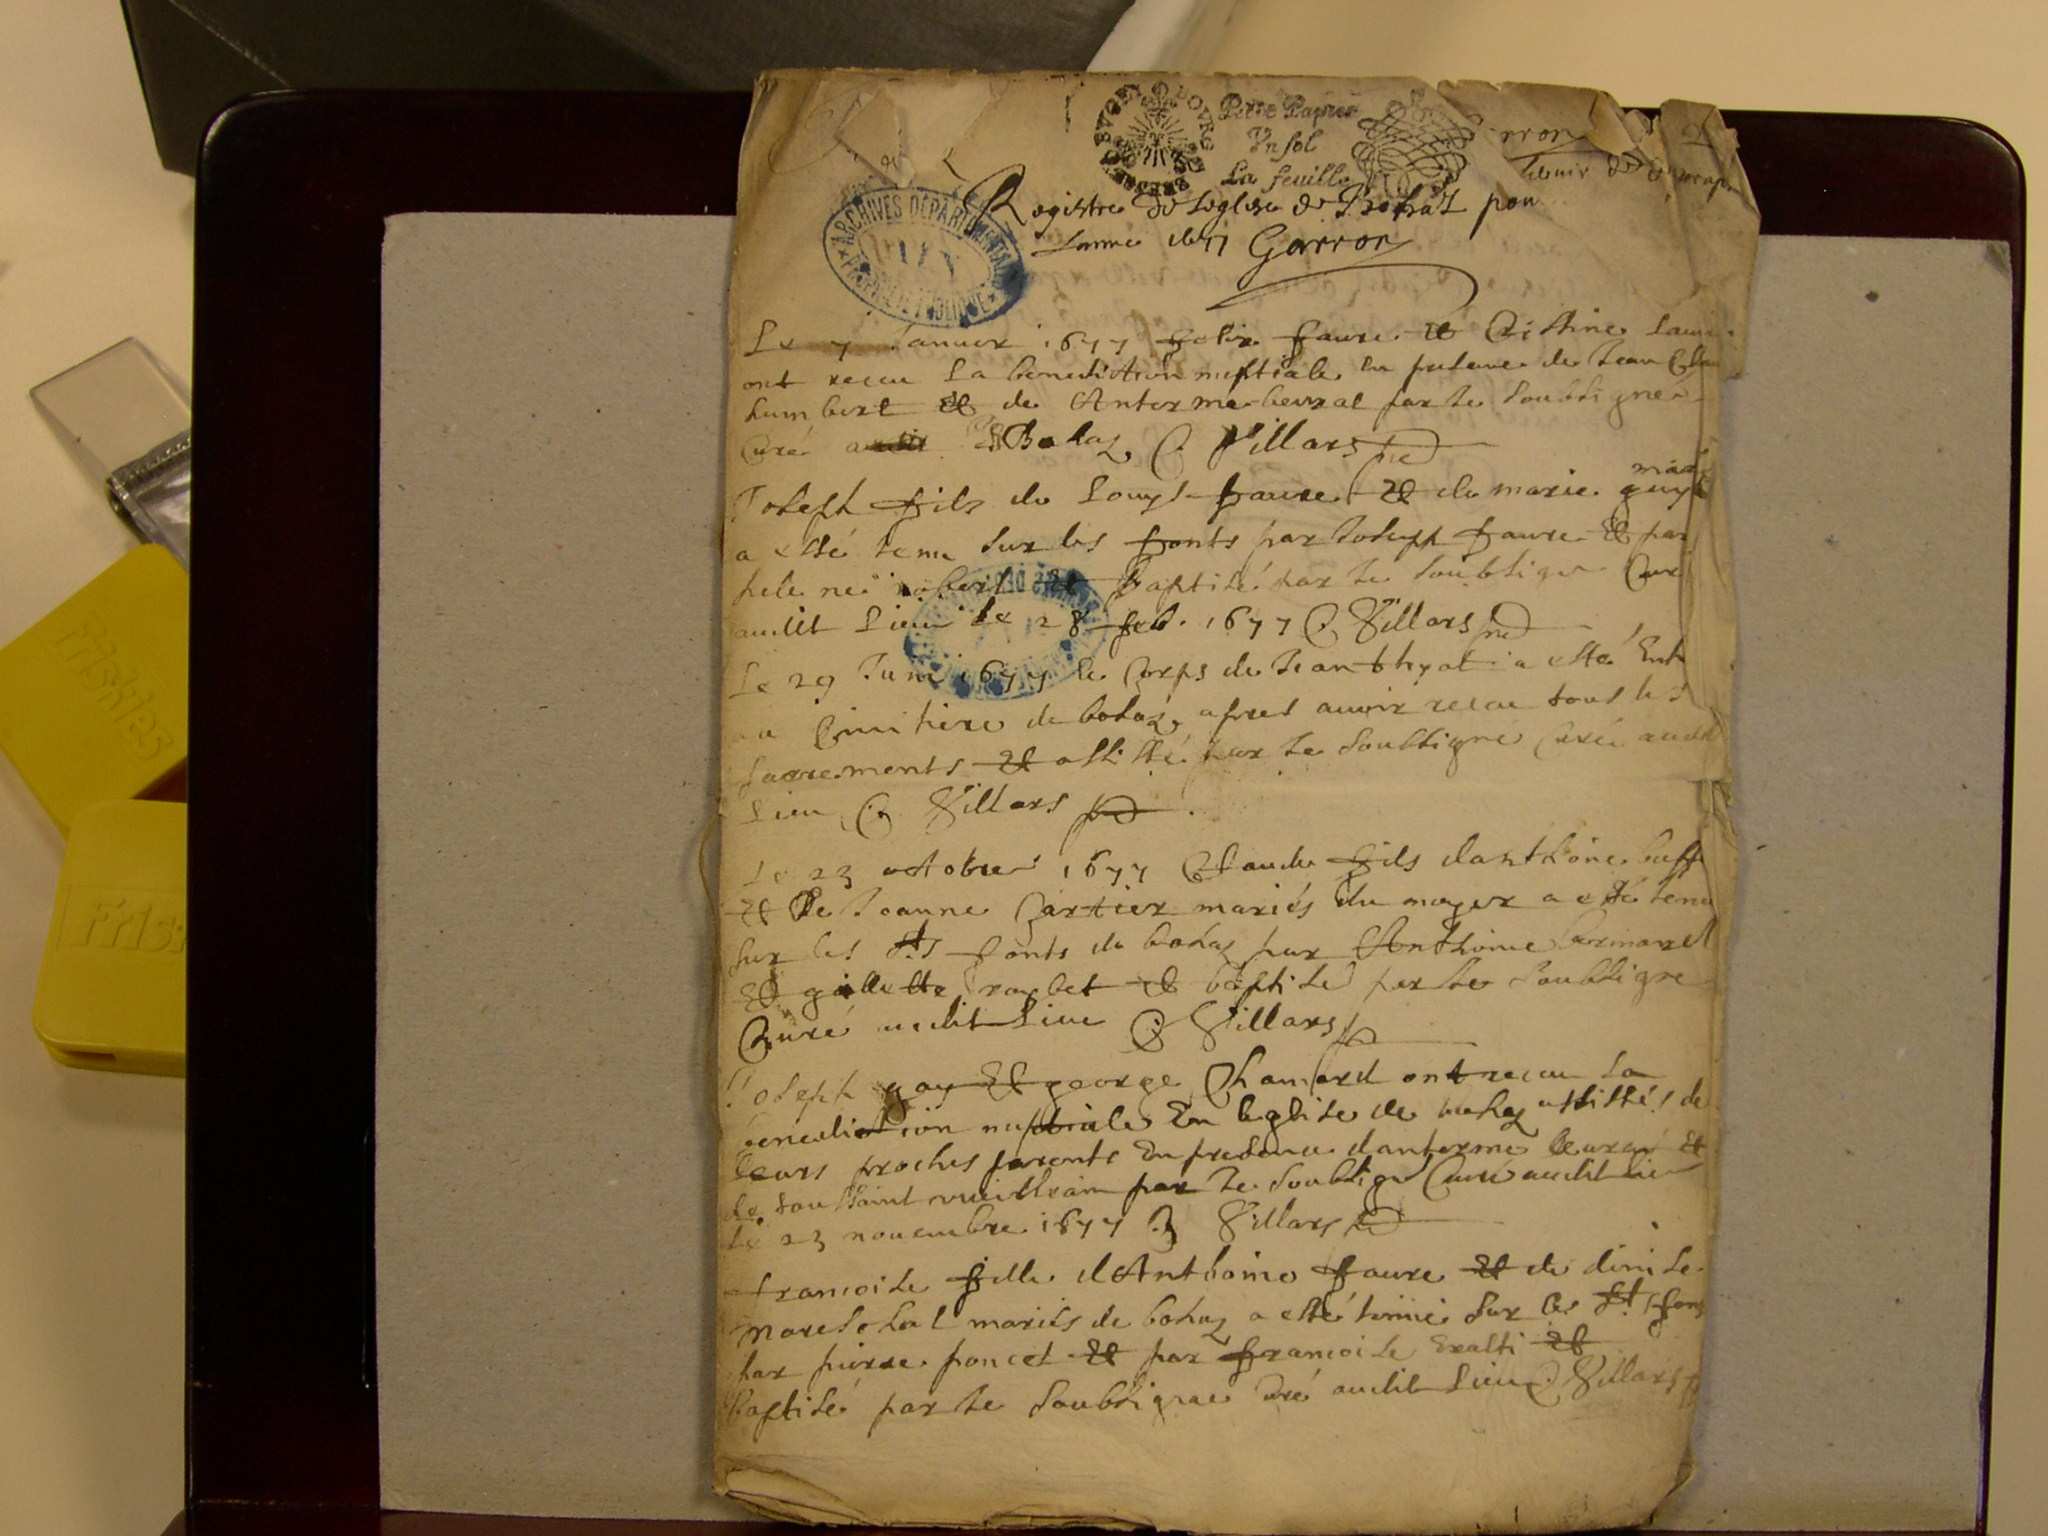 Petit Papier
Un sol
La feuille
Registre de leglise de Bohas pour
Lannee 1677 Garron
Le 7 Januier 1677 felix faure et
ont receu La benediction nuptiale en presence de Jean
humbert et de Anterme beurat par Je soubsigné
Curé Bohaz C. Villars
Joseph fils de Louys faure et de marie guy
a esté tenu sur les fonts par Joseph faure et par
robert et baptisé par Je soubsigne Curé
audit Lieu Le 28 feb. 1677 C. Villars
Le 29 Juin 1677 le Corps de Jean a esté
au Cimitiere de bohaz apres auoir receu tous les
sacrements et assisté par Je soubsigne Curé audit
Lieu C. Villars
Le 23 octobre 1677 Claude fils danthoine
et De Jeanne Cartier mariés a esté tenu
sur les sts fonts de bohaz par Anthoine
et et baptisé par Je soubsigne
Curé audit Lieu C. Villars
Joseph gay et george Chanard ont receu La
benediction nuptiale En leglise de bohaz assistés de
leurs proches parents En presence danterme beurat et
de toussaint par Je soubsigné Curé audit Lieu
Le 23 nouembre 1677 C. Villars
francoise fille dAnthoine faure et de denise
mareschal mariés de bohaz a esté tenue sur les sts fons
par pierre poncet et par francoise et
baptisé par Je soubsigne Curé audit Lieu C. Villars
ARCHIVES DÉPARTEMENTALES
Friskies
Frisk